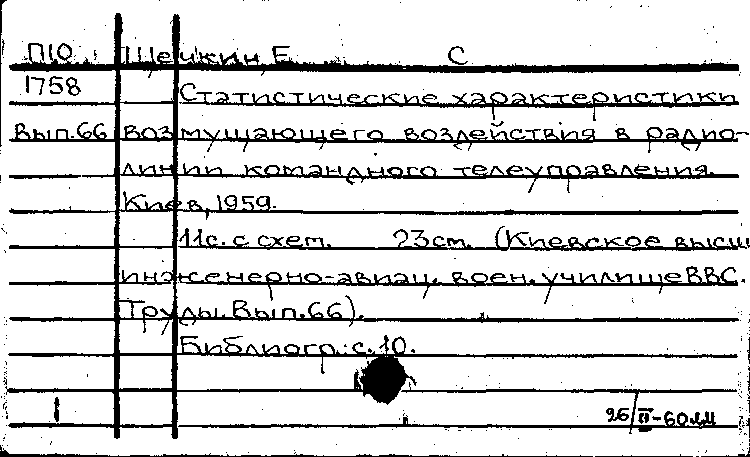 П10 Щечкин Е. С
1758 Статистические характеристики
Вып.66 возмущающего воздействия в радио-
линии командного телеуправления.
Киев, 1959.
11с. с схем. 23см. (Киевское высш
инженерно-авиац. воен. училище ВВС.
Труды. Вып.66).
Библиогр.: с. 10.
1 26/II-60